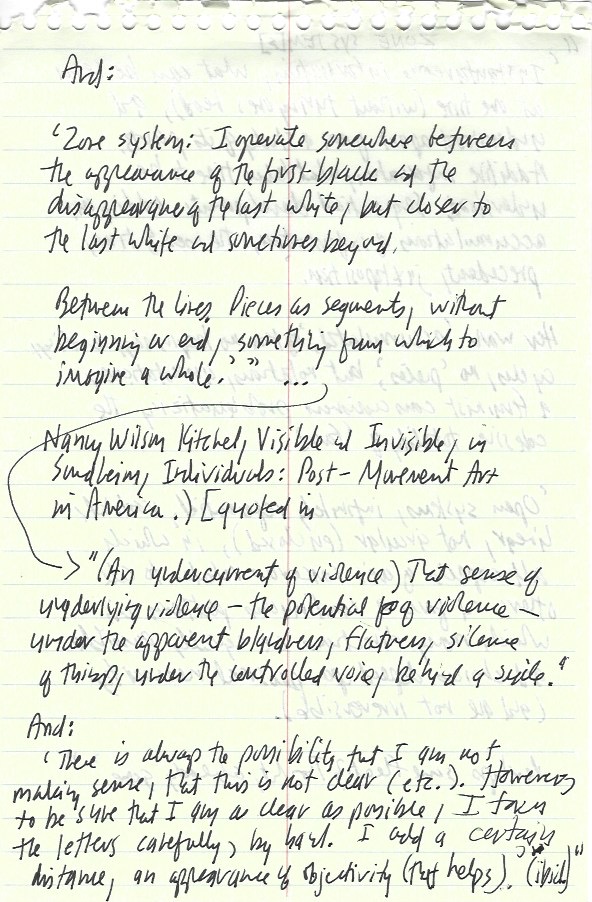 And:
"Zone system: I operate somewhere between
the appearance of the first black and the
disappearance of the last white, but closer to
the last white and sometimes beyond.
Between the lines. Pieces as segments, without
beginning or end, something from which to
imagine a whole.' " ...
Nancy Wilson Kitchel, Visible and Invisible, in
Sondheim, Individuals: Post-Movement Art
in America.) [quoted in
"(An undercurrent of violence) That sense of
underlying violence - the potential of violence -
under the apparent blandness, flatness, silence
of things, under the controlled voice, behind a smile."
And:
'There is always the possibility that I am not
making sense, that this is not clear (etc.). However,
to be sure that I am as clear as possible, I form
the letters carefully, by hand. I add a certain
distance, an appearance of objectivity (that helps).' (ibid)"